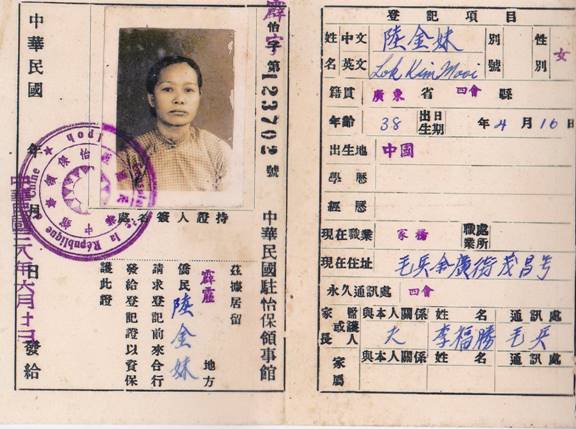 霹怡字第123702號
持證人簽名處
中華民國駐怡保領事館
茲據居留
霹靂 地方
僑民 陸金妹
請求登記前來合行
發給登記證以資保
護此證
中華民國 年 月 日發給
la République
Chine
登記項目
姓名 中文 陸金妹 別號 性別 女
英文 Lok Kim Mooi
籍貫 廣東 省 四會 縣
年齡 38 出生日期 年 4 月 16 日
出生地 中國
學歷
經歷
現在職業 家務 職業處所
現在住址
永久通訊處 四會
家長或監護人 與本人關係 姓名 通訊處
夫 李福勝
家屬 與本人關係 姓名 通訊處